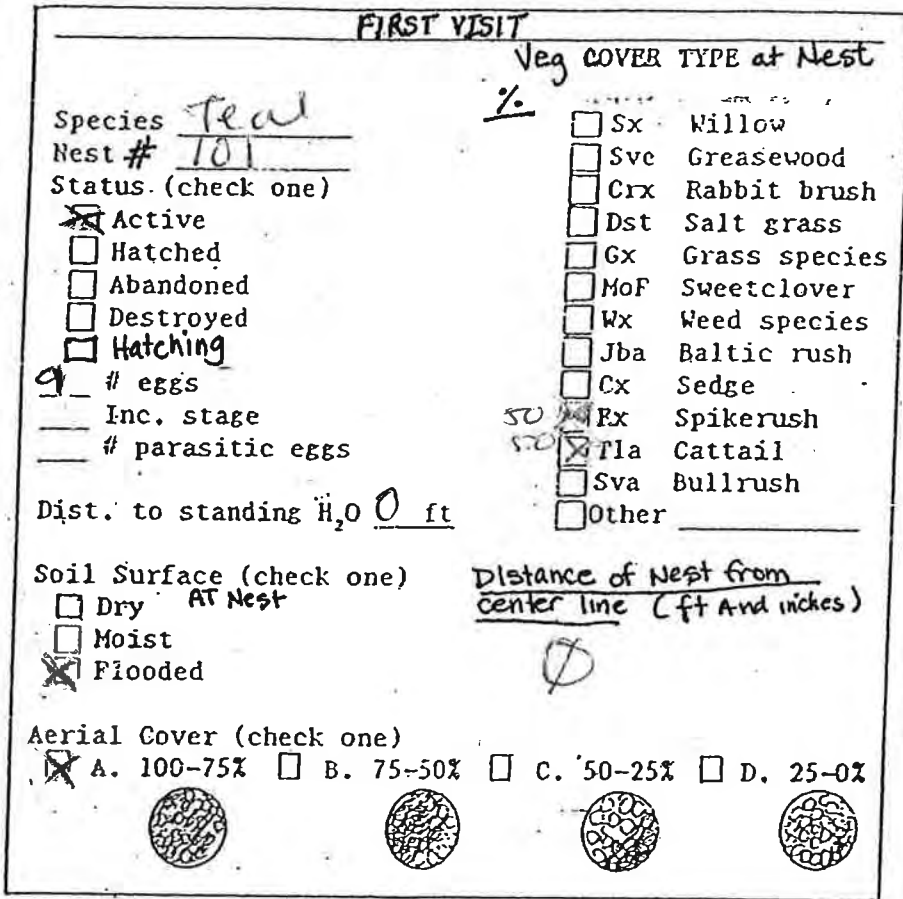 FIRST VISIT
Veg COVER TYPE at Nest
%
Species Teal
Nest # 101
Status (check one)
Active
Hatched
Abandoned
Destroyed
Hatching
9 # eggs
Inc. stage
# parasitic eggs
Dist. to standing H₂O 0 ft
Soil Surface (check one)
AT Nest
Dry
Moist
Flooded
Sx Willow
Svc Greasewood
Crx Rabbit brush
Dst Salt grass
Gx Grass species
MoF Sweetclover
Wx Weed species
Jba Baltic rush
Cx Sedge
50 Ex Spikerush
50 Tla Cattail
Sva Bullrush
Other
Distance of Nest from
center line (ft And inches)
0
Aerial Cover (check one)
A. 100-75% B. 75-50% C. 50-25% D. 25-0%